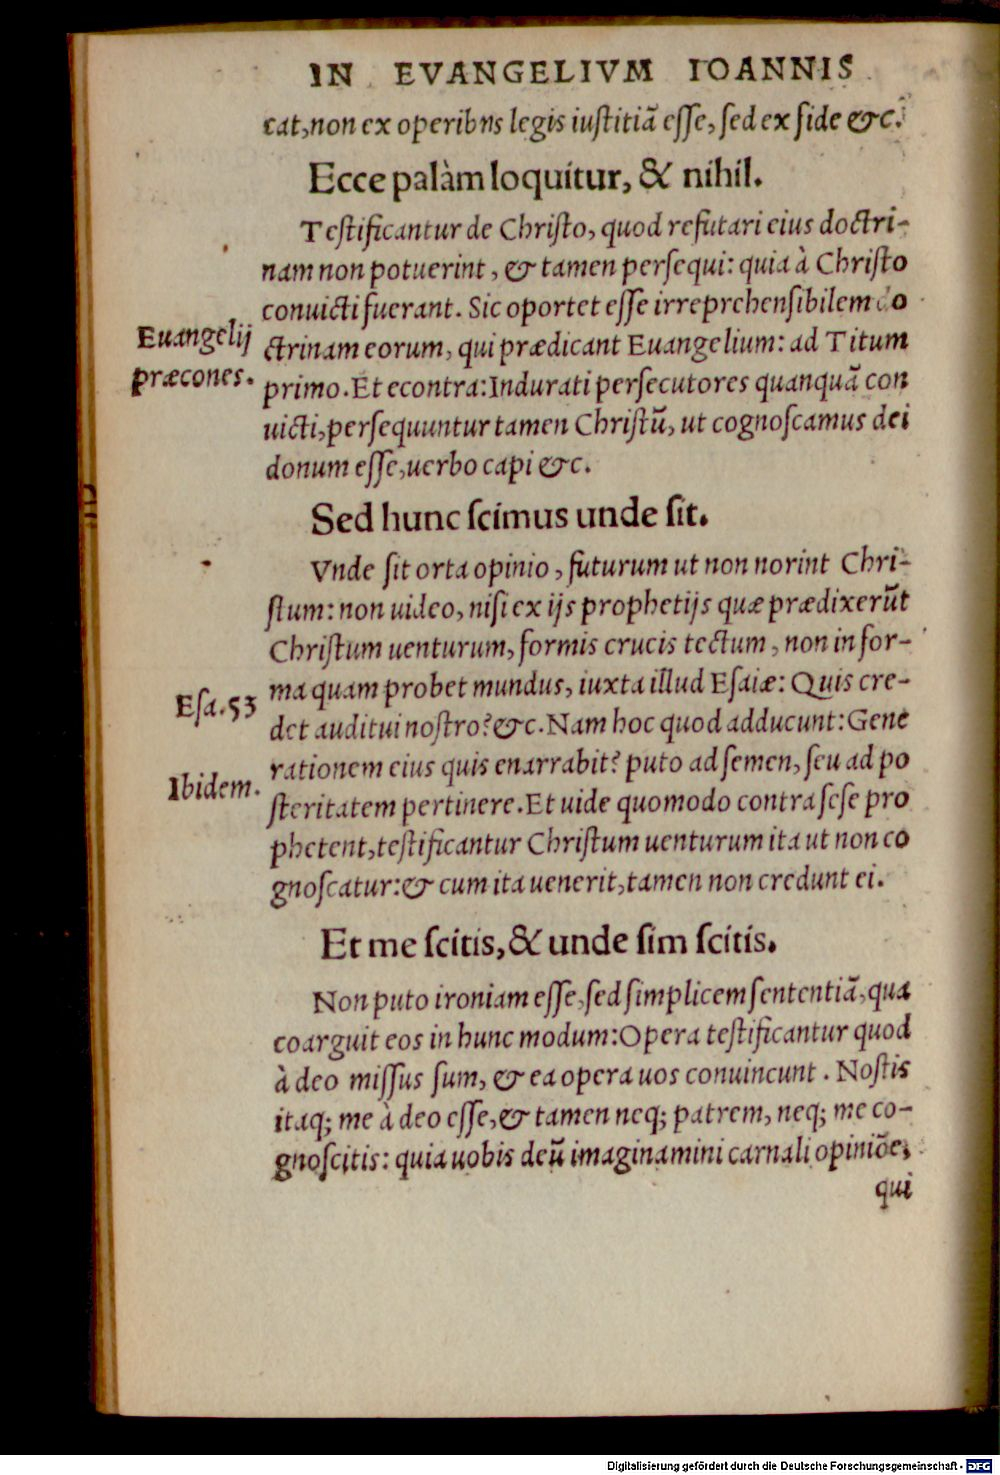 IN EVANGELIVM IOANNIS
cat, non ex operibus legis iustitiã esse, sed ex fide &c.
Ecce palàm loquitur, & nihil.
Testificantur de Christo, quod refutari eius doctri-
nam non potuerint, & tamen persequi: quia à Christo
convicti fuerant. Sic oportet esse irreprehensibilem do
Euangelij
ctrinam eorum, qui prædicant Euangelium: ad Titum
præcones.
primo. Et econtra: Indurati persecutores quanquã con
uicti, persequuntur tamen Christũ, ut cognoscamus dei
donum esse, uerbo capi &c.
Sed hunc scimus unde sit.
Vnde sit orta opinio, futurum ut non norint Chri-
stum: non uideo, nisi ex ijs prophetijs quæ prædixerũt
Christum uenturum, formis crucis tectum, non in for-
Esa. 53
ma quam probet mundus, iuxta illud Esaiæ: Quis cre-
det auditui nostro? &c. Nam hoc quod adducunt: Gene
Ibidem.
rationem eius quis enarrabit? puto ad semen, seu ad po
steritatem pertinere. Et uide quomodo contra sese pro
phetent, testificantur Christum uenturum ita ut non co
gnoscatur: & cum ita uenerit, tamen non credunt ei.
Et me scitis, & unde sim scitis.
Non puto ironiam esse, sed simplicem sententiã, qua
coarguit eos in hunc modum: Opera testificantur quod
à deo missus sum, & ea opera uos conuincunt. Nostis
itaq; me à deo esse, & tamen neq; patrem, neq; me co-
gnoscitis: quia uobis deũ imaginamini carnali opiniõe,
qui
Digitalisierung gefördert durch die Deutsche Forschungsgemeinschaft - DFG